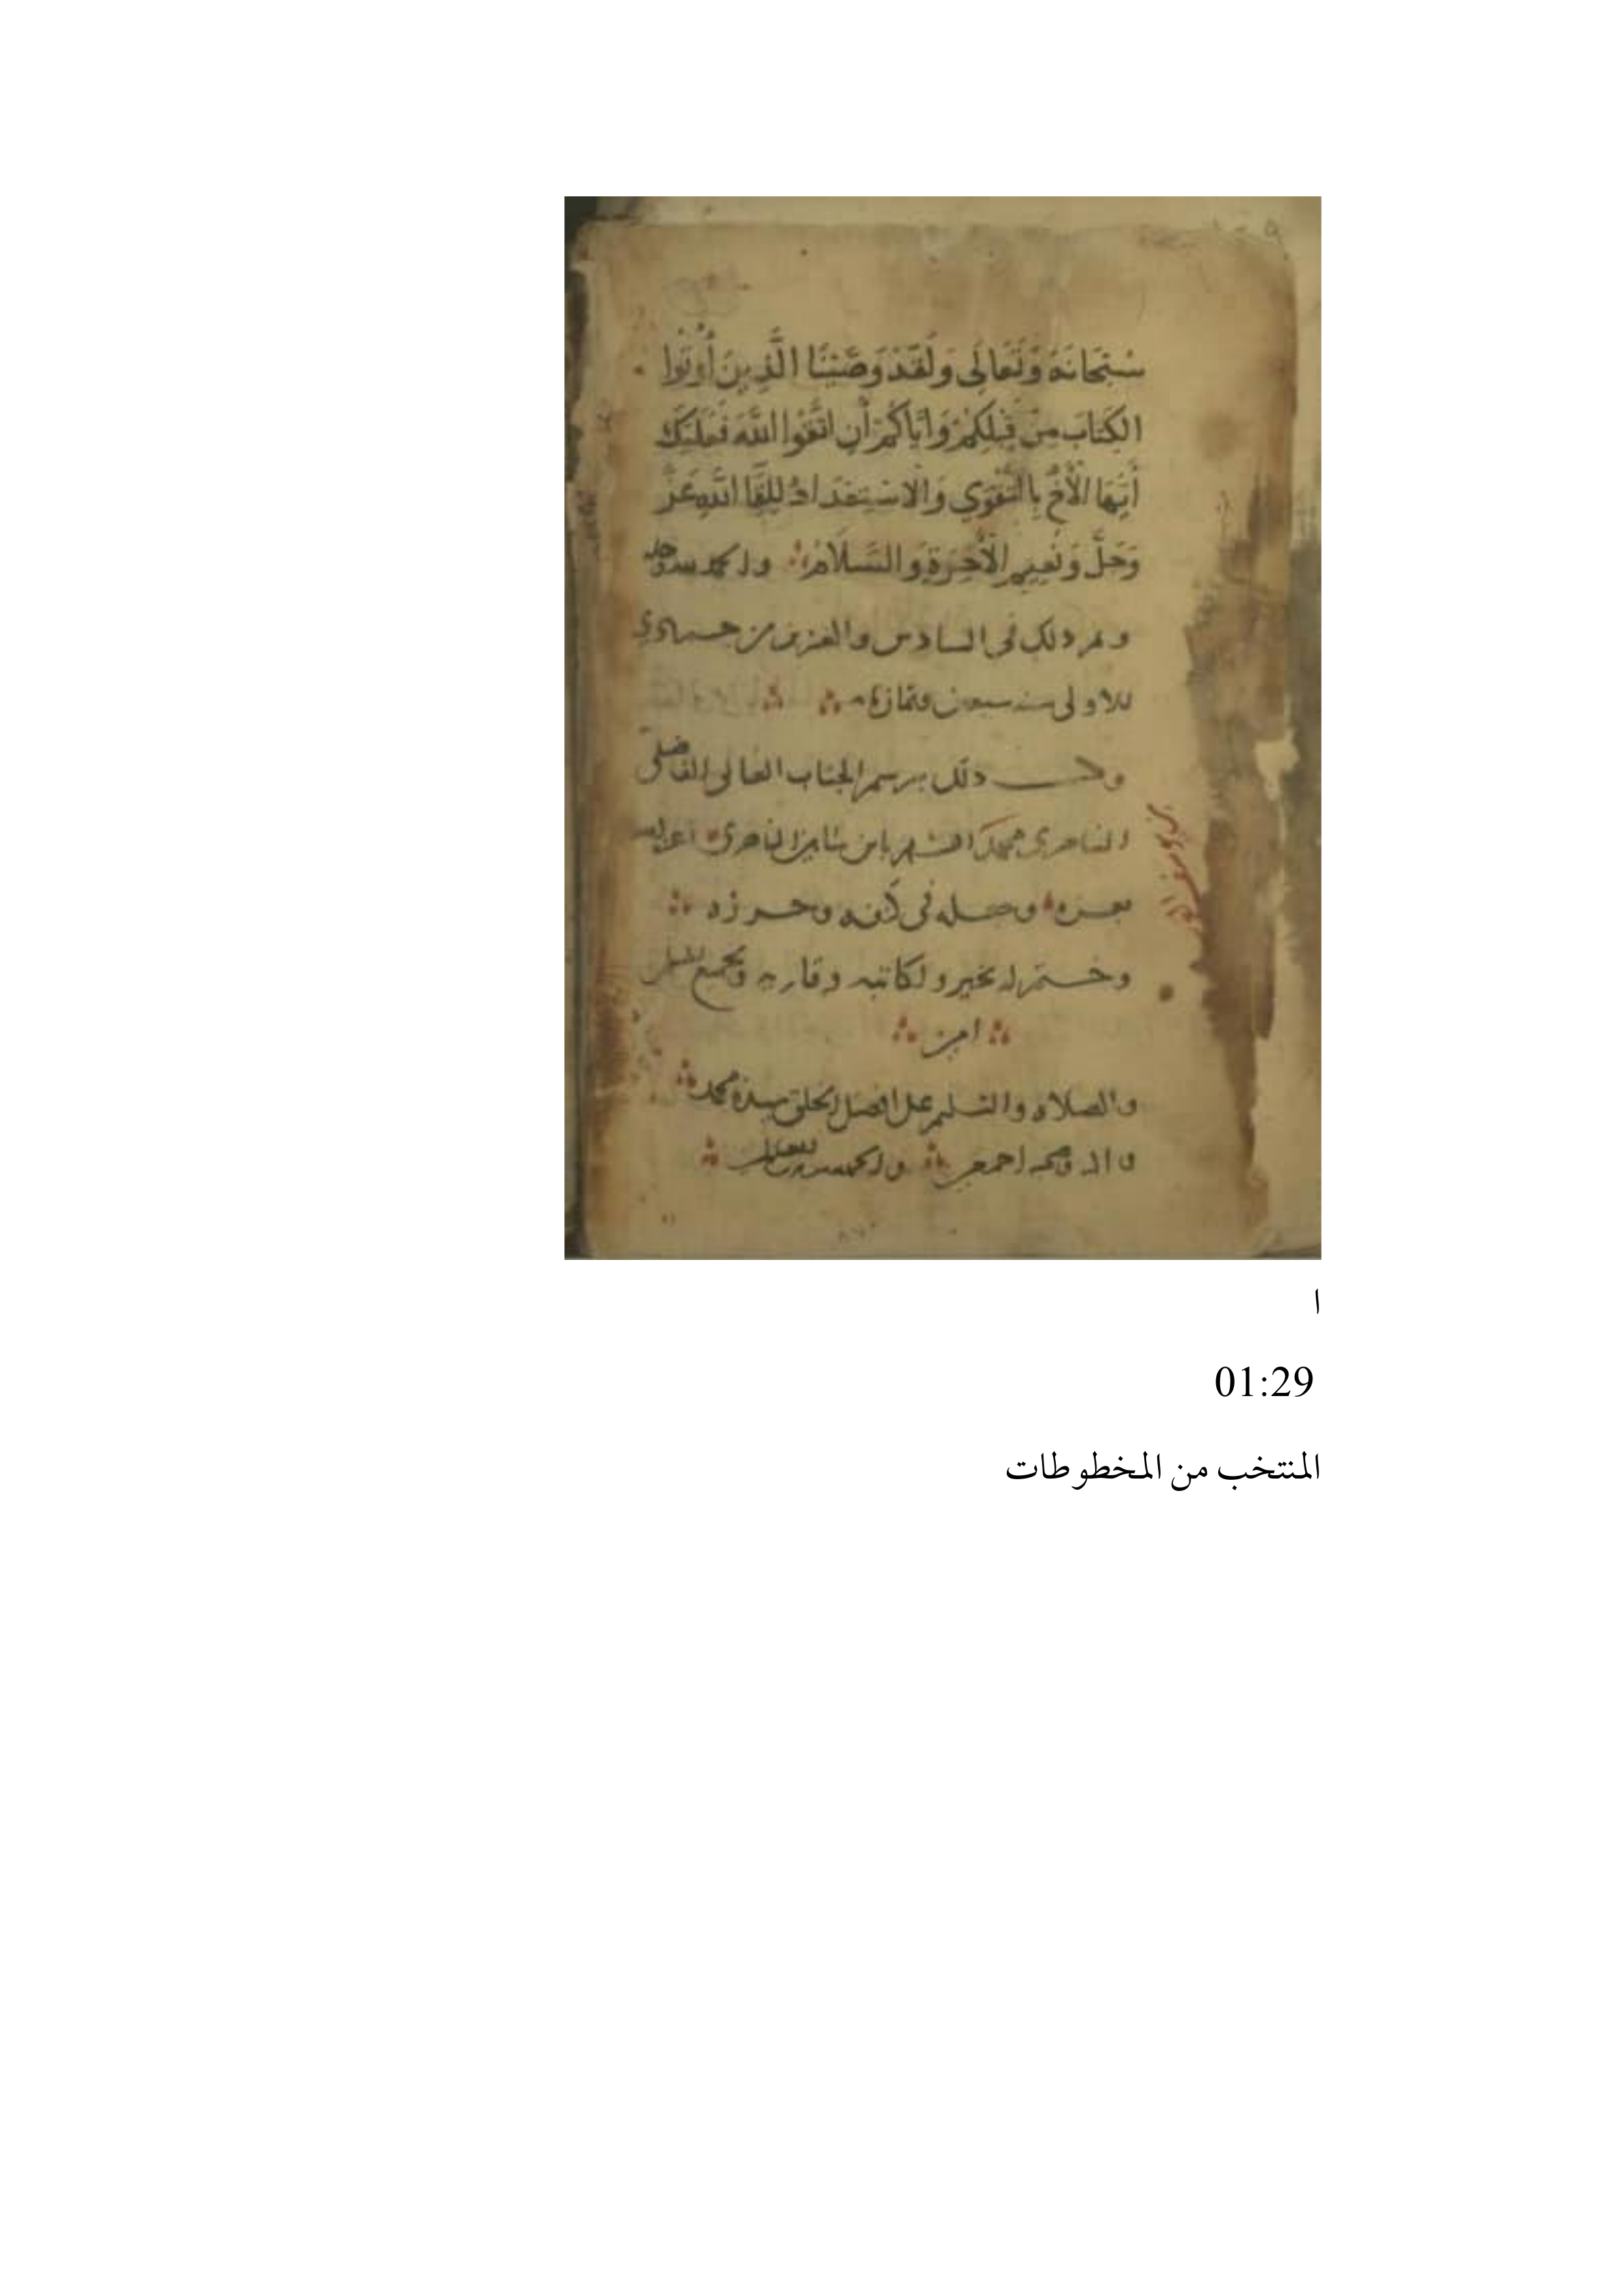 سُبْحَانَهُ وَتَعَالَى وَلَقَدْ وَصَّيْنَا الَّذِينَ أُوتُوا
الكِتَابَ مِنْ قَبْلِكُمْ وَإِيَّاكُمْ أَنِ اتَّقُوا اللَّهَ فَعَلَيْكَ
أَيُّهَا الْأَخُ بِالتَّقْوَى وَالاسْتِعْدَادِ لِلِقَا اللَّهِ عَزَّ
وَجَلَّ وَنَعِيمِ الْآخِرَةِ وَالسَّلَامُ والحمد لله وحده
وتم ذلك في السادس والعشرين من جمادي
الاولى سنة سبعين وثمانمائة
وكتب ذلك برسم الجناب العالي الفاضلي
الناصري محمد الشهير بابن الناصري اعزه الله
وجعله في كنفه وحرزه
وختم له بخير ولكاتبه وقاريه ولجميع المسلمين
امين
والصلاة والتسليم على افضل الخلق سيدنا محمد
واله وصحبه اجمعين والحمد لله رب العالمين
ا
01:29
المنتخب من المخطوطات